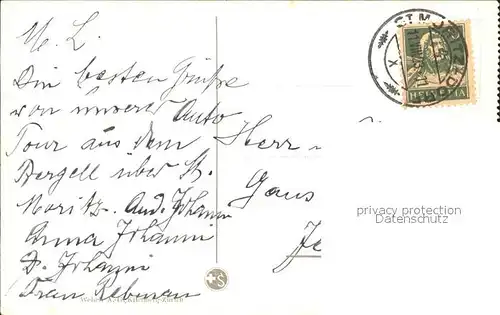 M. L.
Die besten Grüsse
von unserer Auto
Tour aus dem
Bergell über St.
Moritz. And. Johanni
Anna Johanni
D. Johanni
Frau
Herr
Hans
ST. MORITZ
HELVETIA
privacy protection
Datenschutz